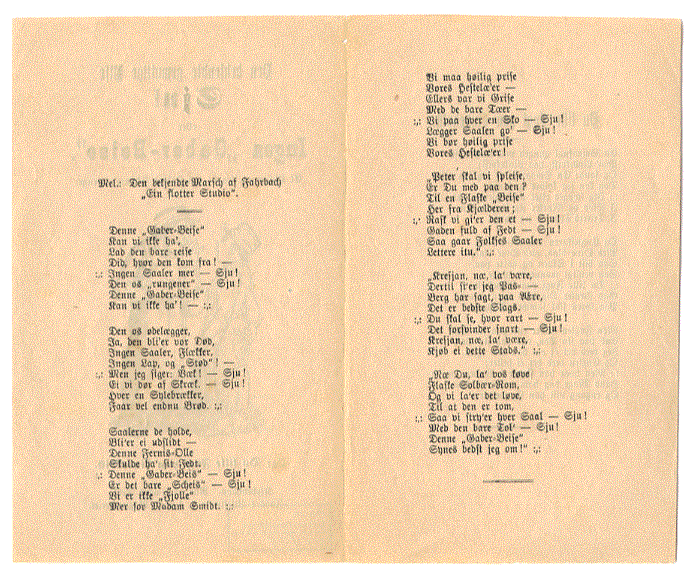 Mel.: Den bekjendte Marsch af Fahrbach
„Ein flotter Studio“.
Denne „Gaber-Beise“
Kan vi ikke ha',
Lad den bare reise
Did, hvor den kom fra! —
:,: Ingen Saaler mer — Sju!
Den os „rungener“ — Sju!
Denne „Gaber-Beise“
Kan vi ikke ha'! — :,:
Den os ødelægger,
Ja, den bli'er vor Død,
Ingen Saaler, Flækker,
Ingen Lap, og „Stød“! —
:,: Men jeg siger: Væk! — Sju!
Ei vi dør af Skræk. — Sju!
Hver en Sylebrækker,
Faar vel endnu Brød. :,:
Saalerne de holde,
Bli'er ei udslidt —
Denne Fernis-Olle
Skulde ha' sit Fedt.
:,: Denne „Gaber-Beis“ — Sju!
Er det bare „Scheis“ — Sju!
Vi er ikke „Fjolle“
Mer for Madam Smidt. :,:
Vi maa høilig prise
Vores Hestelæ'er —
Ellers var vi Grise
Med de bare Tæer —
:,: Vi paa hver en Sko — Sju!
Lægger Saalen go' — Sju!
Vi bør høilig prise
Vores Hestelæ'er!
„Peter skal vi spleise,
Er Du med paa den?
Til en Flaske „Beise“
Her fra Kjælderen;
:,: Rask vi gi'er den et — Sju!
Gaden fuld af Fedt — Sju!
Saa gaar Folkses Saaler
Lettere itu.“ :,:
„Kresjan, næ, la' være,
Dertil si'er jeg Pas —
Berg har sagt, paa Ære,
Det er bedste Slags.
:,: Du skal se, hvor rart — Sju!
Det forsvinder snart — Sju!
Kresjan, næ, la' være,
Kjøb ei dette Stads.“ :,:
„Næ Du, la' vos køve
Flaske Solbær-Rom,
Og vi la'er det løve,
Til at den er tom,
:,: Saa vi stry'er hver Saal — Sju!
Med den bare Tol' — Sju!
Denne „Gaber-Beise“
Synes bedst jeg om!“ :,: